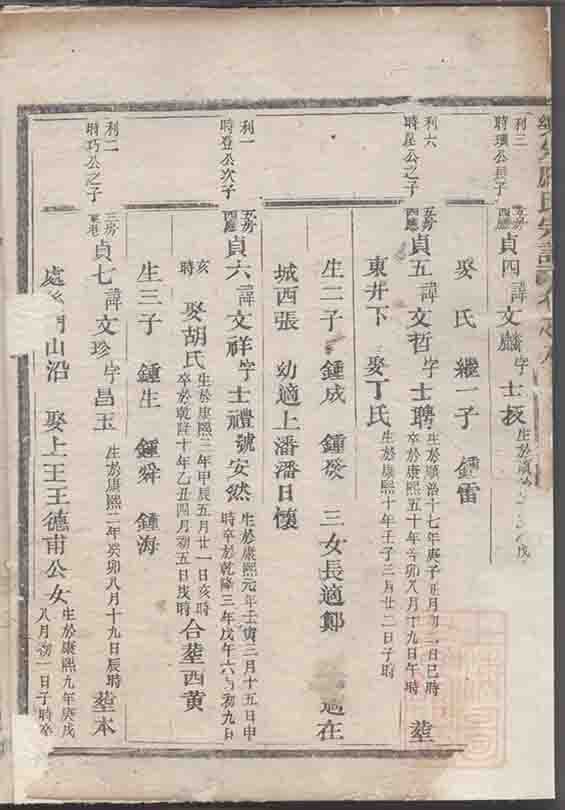 利三
時瓊公長子
五房
四廳
貞四 諱文麟 字士拔 生於順
娶 氏 繼一子 鍾雷
利六
時星公之子
五房
四廳
貞五 諱文哲 字士聘 生於順治十七年庚子正月初二日巳時
卒於康熙五十年辛卯八月十九日午時 葬
東井下 娶丁氏 生於康熙十年壬子三月廿二日子時
生二子 鍾成 鍾發 三女長適鄭 適在
城西張 幼適上潘潘日懷
利一
時登公次子
五房
四廳
貞六 諱文祥 字士禮號安然 生於康熙元年壬寅三月十五日申
時卒於乾隆三年戊午六月初九日
亥
時 娶胡氏 生於康熙三年甲辰五月廿一日亥時
卒於乾隆十年乙丑四月初五日戌時 合葬西黄
生三子 鍾生 鍾舜 鍾海
利二
時巧公之子
三房
貞七 諱文珍 字昌玉 生於康熙二年癸卯八月十九日辰時 葬本
處 山沿 娶上王王德甫公女 生於康熙九年庚戌
八月初一日子時卒